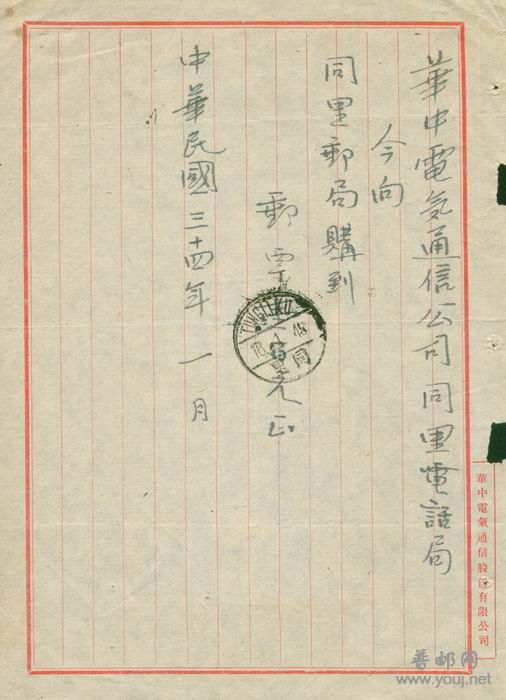 華中電気通信公司同里電話局
今向
同里郵局購到
郵票 百元正
中華民國三十四年 一 月
華中電氣通信股份有限公司
45
同
普邮网
www.youj.net